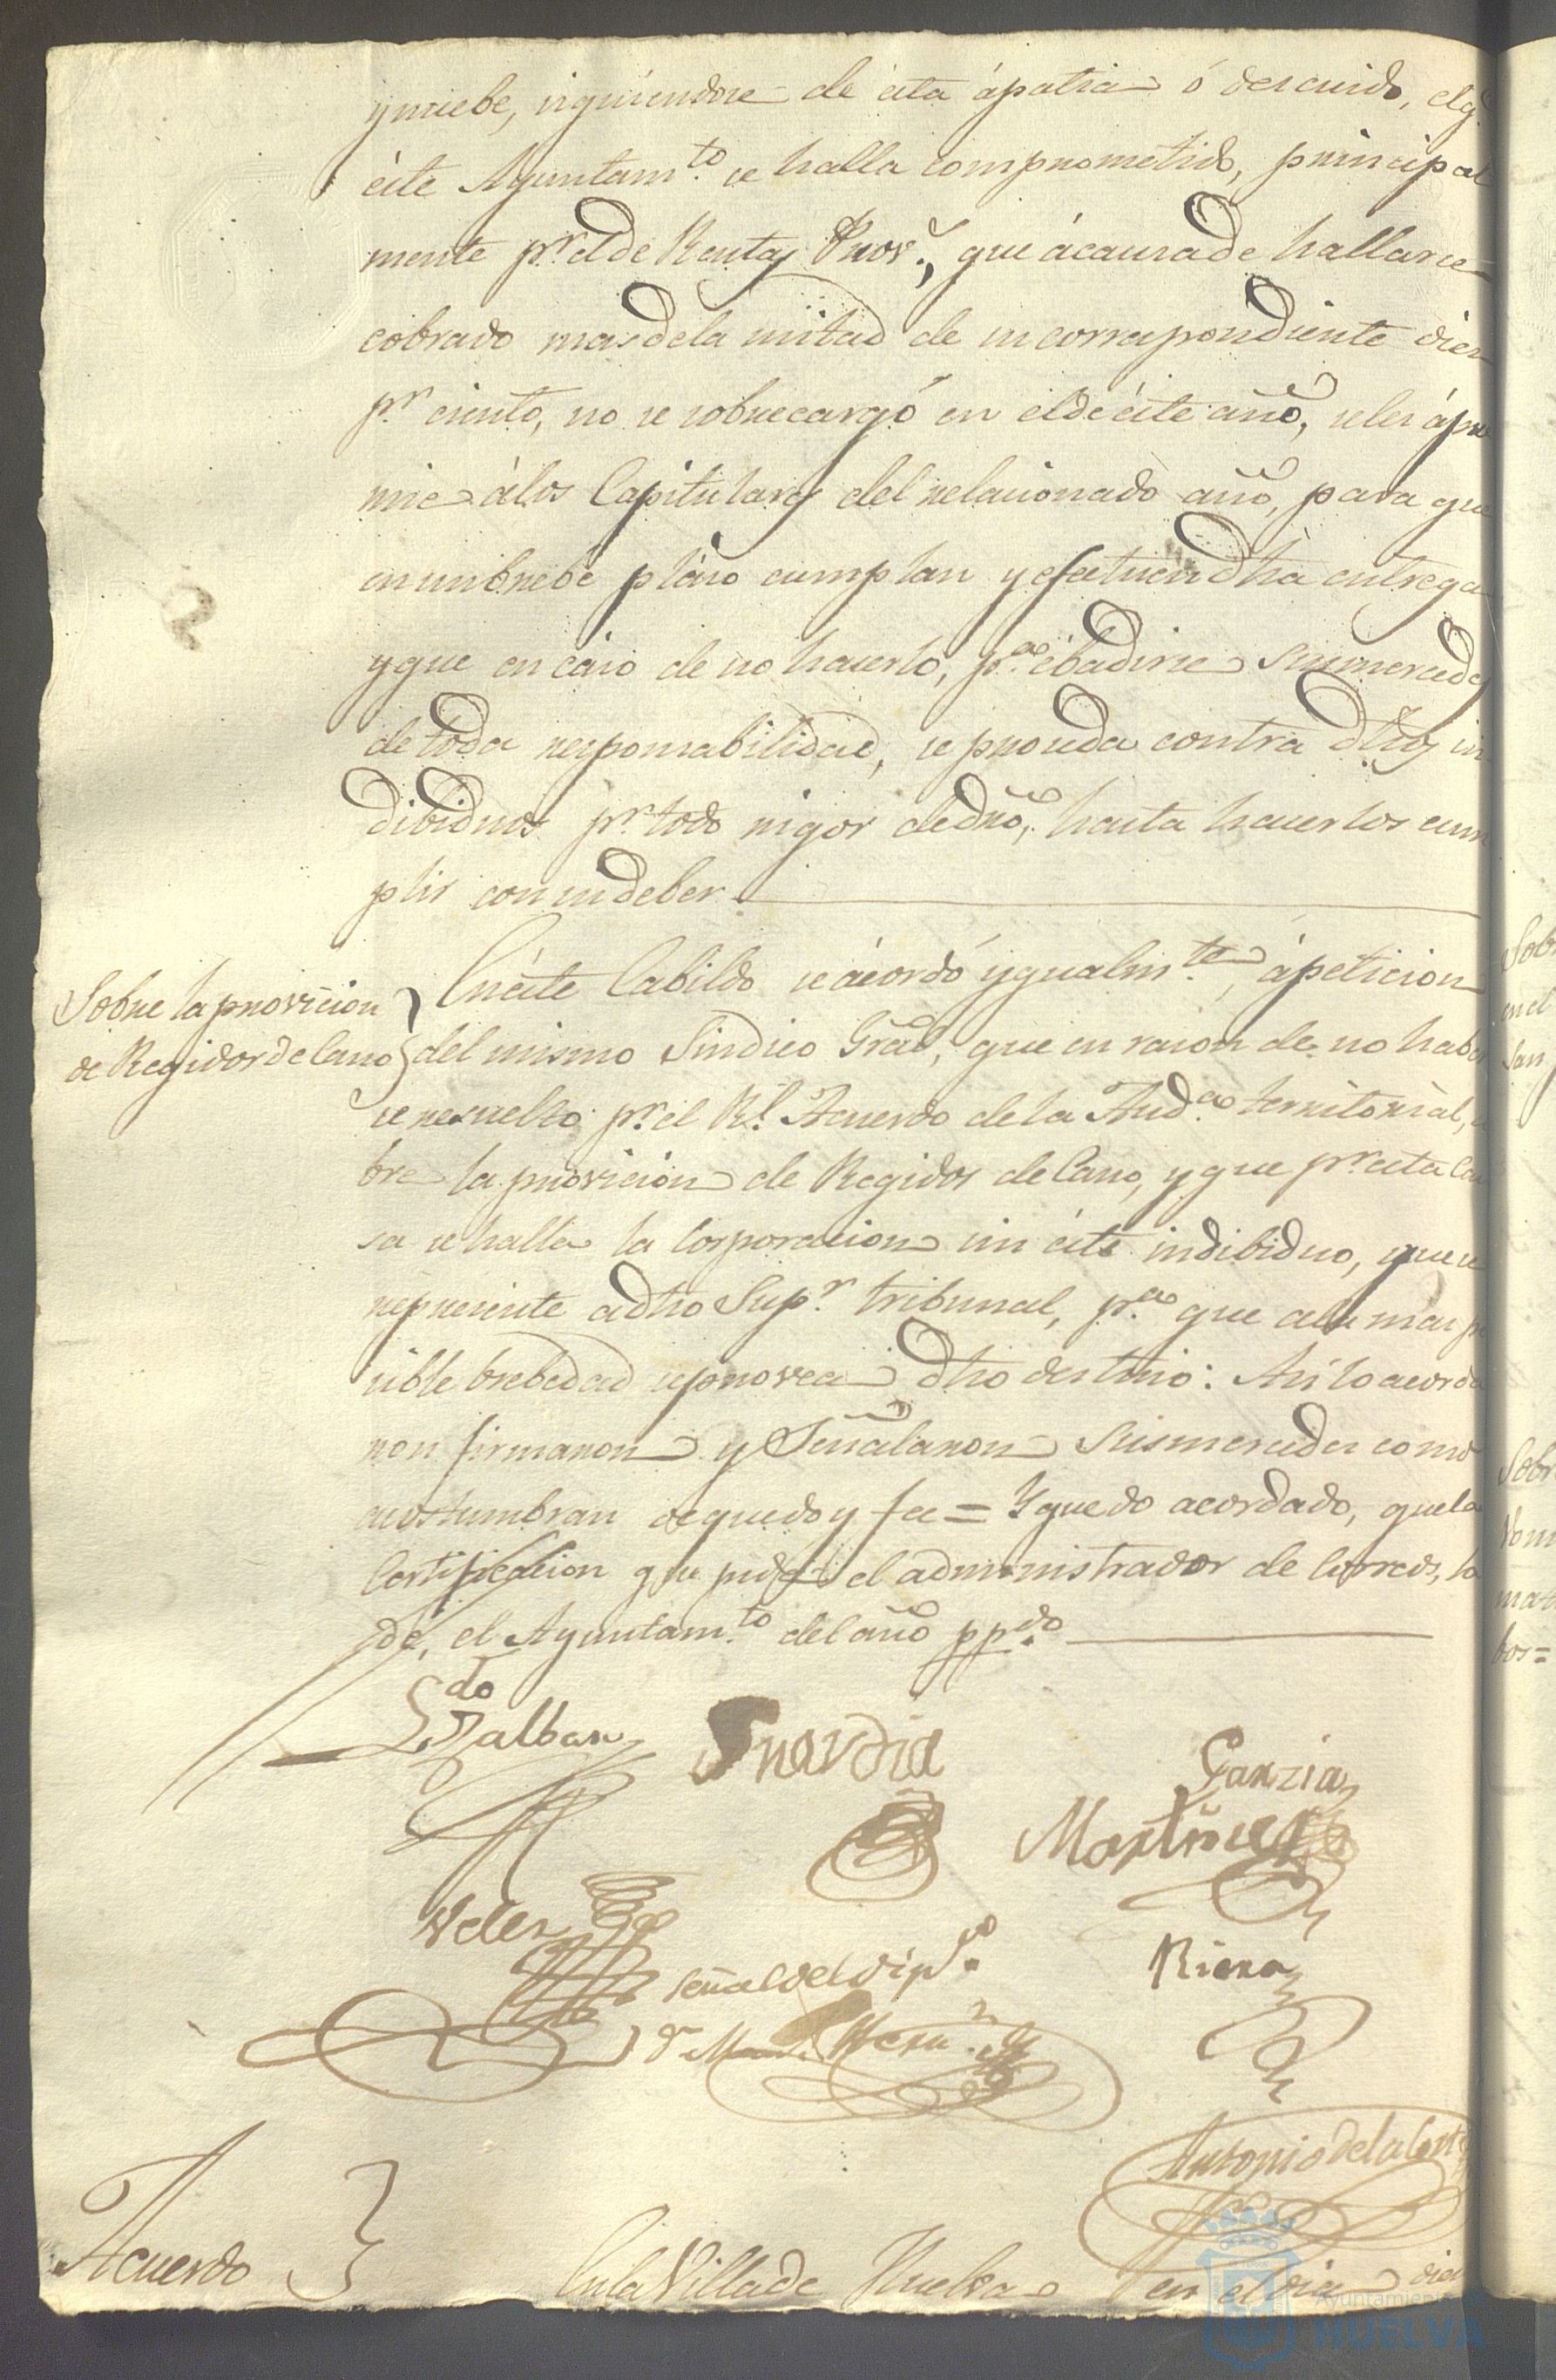 y nuebe, siguiendose de ésta ápatia ó descuido, el q.e
éste Ayuntam.to se halla comprometido, principal
mente p.r el de Rentas Prov.s, que ácausa de hallarse
cobrado mas dela mitad de su correspondiente dies
p.r ciento, no se sobrecargó en el de éste año, se les ápre
mie álos Capitulares del relacionado año, para que
en un brebe pláso cumplan y efectuen dhâ entrega
y que en caso de no hacerlo, p.a ébadirse Sus mercedes
de toda responsabilidad, se proceda contra dhôs in
dibiduos p.r todo rigor de dró, hasta hacerlos cum
plir con su deber
Sobre la provicion
de Regidor de Cano
En éste Cabildo se ácordó ygualm.te, ápeticion
del mismo Sindico Grâl, que en rason de no haber
se resuelto p.r el R.l Acuerdo de la Aud.a territorial, so
bre la provicion de Regidor de Cano, y que p.r esta cau
sa se halla la Corporacion sin éste indibiduo, que se
represente adho Sup.r tribunal, p.a que ala mas po
sible brebedad se provea dho destino: Así lo acorda
ron firmaron y Señalaron Sus mercedes como
acostumbran de que doy fee = Y quedo acordado, que la
Certificacion que pide el administrador de Correos, la
dé, el Ayuntam.to del año pp.do
L.do Zalban
Garzia
Martinez
Velez
Señal del dip.do
Riera
Antonio de la Corte
Acuerdo
En la Villa de Huelva en el dia dies
Sobr
en el
San
Sobr
Nom
bos =
Ayuntamiento de
HUELVA